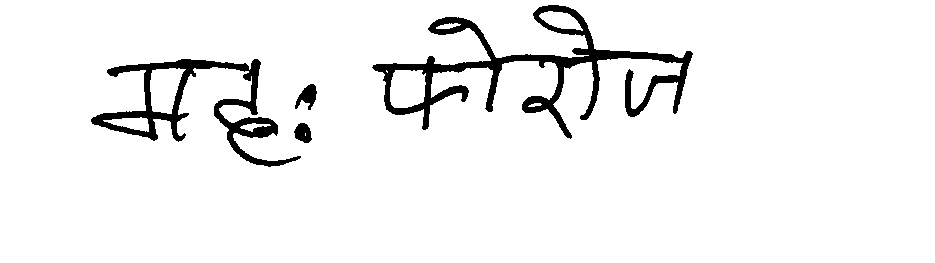 माह: फोरोज